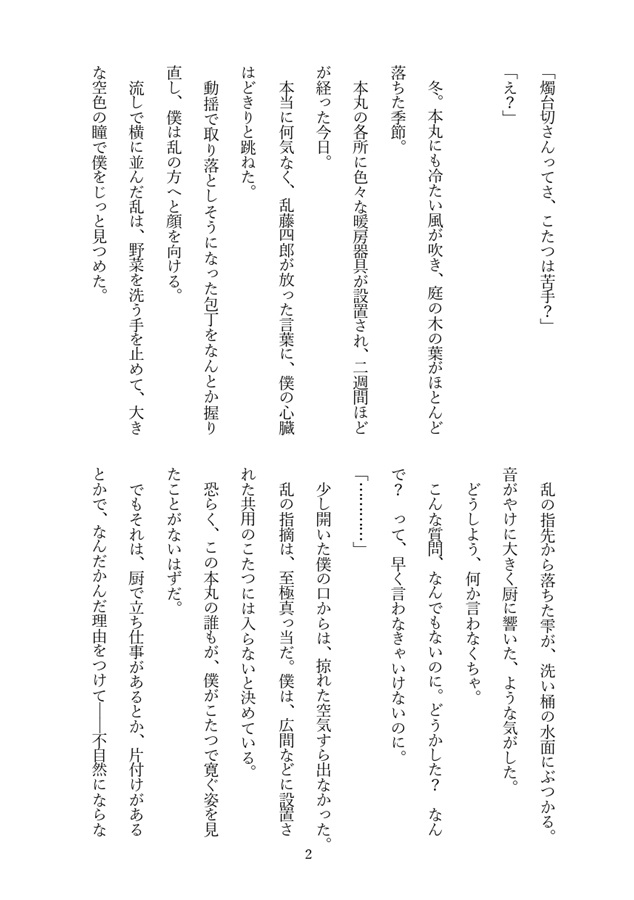 「燭台切さんってさ、こたつは苦手？」
「え？」
冬。本丸にも冷たい風が吹き、庭の木の葉がほとんど
落ちた季節。
本丸の各所に色々な暖房器具が設置され、二週間ほど
が経った今日。
本当に何気なく、乱藤四郎が放った言葉に、僕の心臓
はどきりと跳ねた。
動揺で取り落としそうになった包丁をなんとか握り
直し、僕は乱の方へと顔を向ける。
流しで横に並んだ乱は、野菜を洗う手を止めて、大き
な空色の瞳で僕をじっと見つめた。
乱の指先から落ちた雫が、洗い桶の水面にぶつかる。
音がやけに大きく厨に響いた、ような気がした。
どうしよう、何か言わなくちゃ。
こんな質問、なんでもないのに。どうかした？　なん
で？　って、早く言わなきゃいけないのに。
「…………」
少し開いた僕の口からは、掠れた空気すら出なかった。
乱の指摘は、至極真っ当だ。僕は、広間などに設置さ
れた共用のこたつには入らないと決めている。
恐らく、この本丸の誰もが、僕がこたつで寛ぐ姿を見
たことがないはずだ。
でもそれは、厨で立ち仕事があるとか、片付けがある
とかで、なんだかんだ理由をつけて――不自然にならな
2